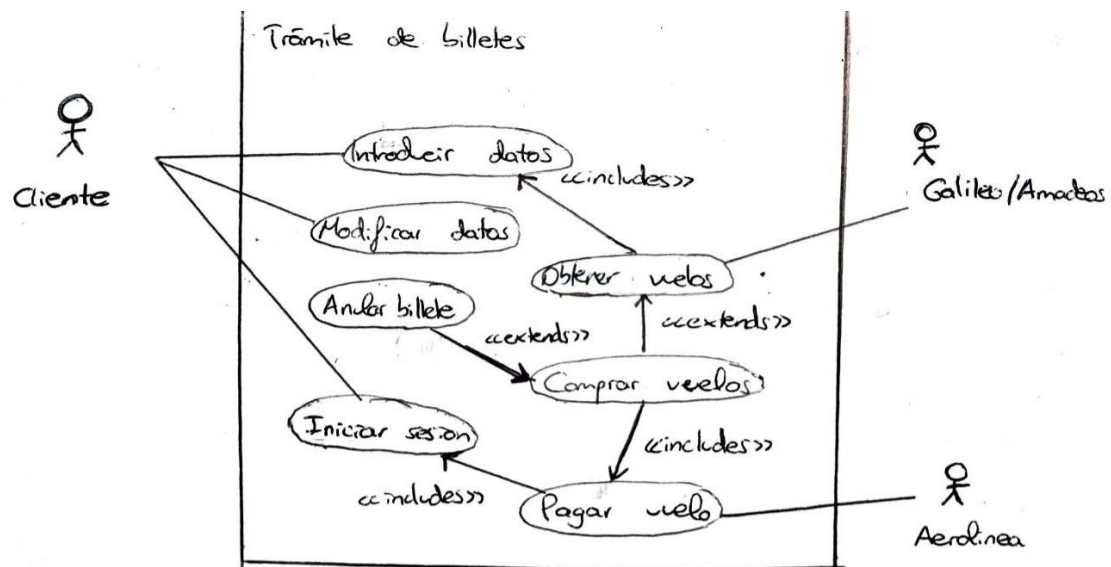 Trámite de billetes
Introducir datos
<<includes>>
Cliente
Galileo/Amadeos
Modificar datos
Obtener vuelos
Anular billete
<<extends>>
<<extends>>
Comprar vuelos
Iniciar sesion
<<includes>>
<<includes>>
Pagar vuelo
Aerolinea